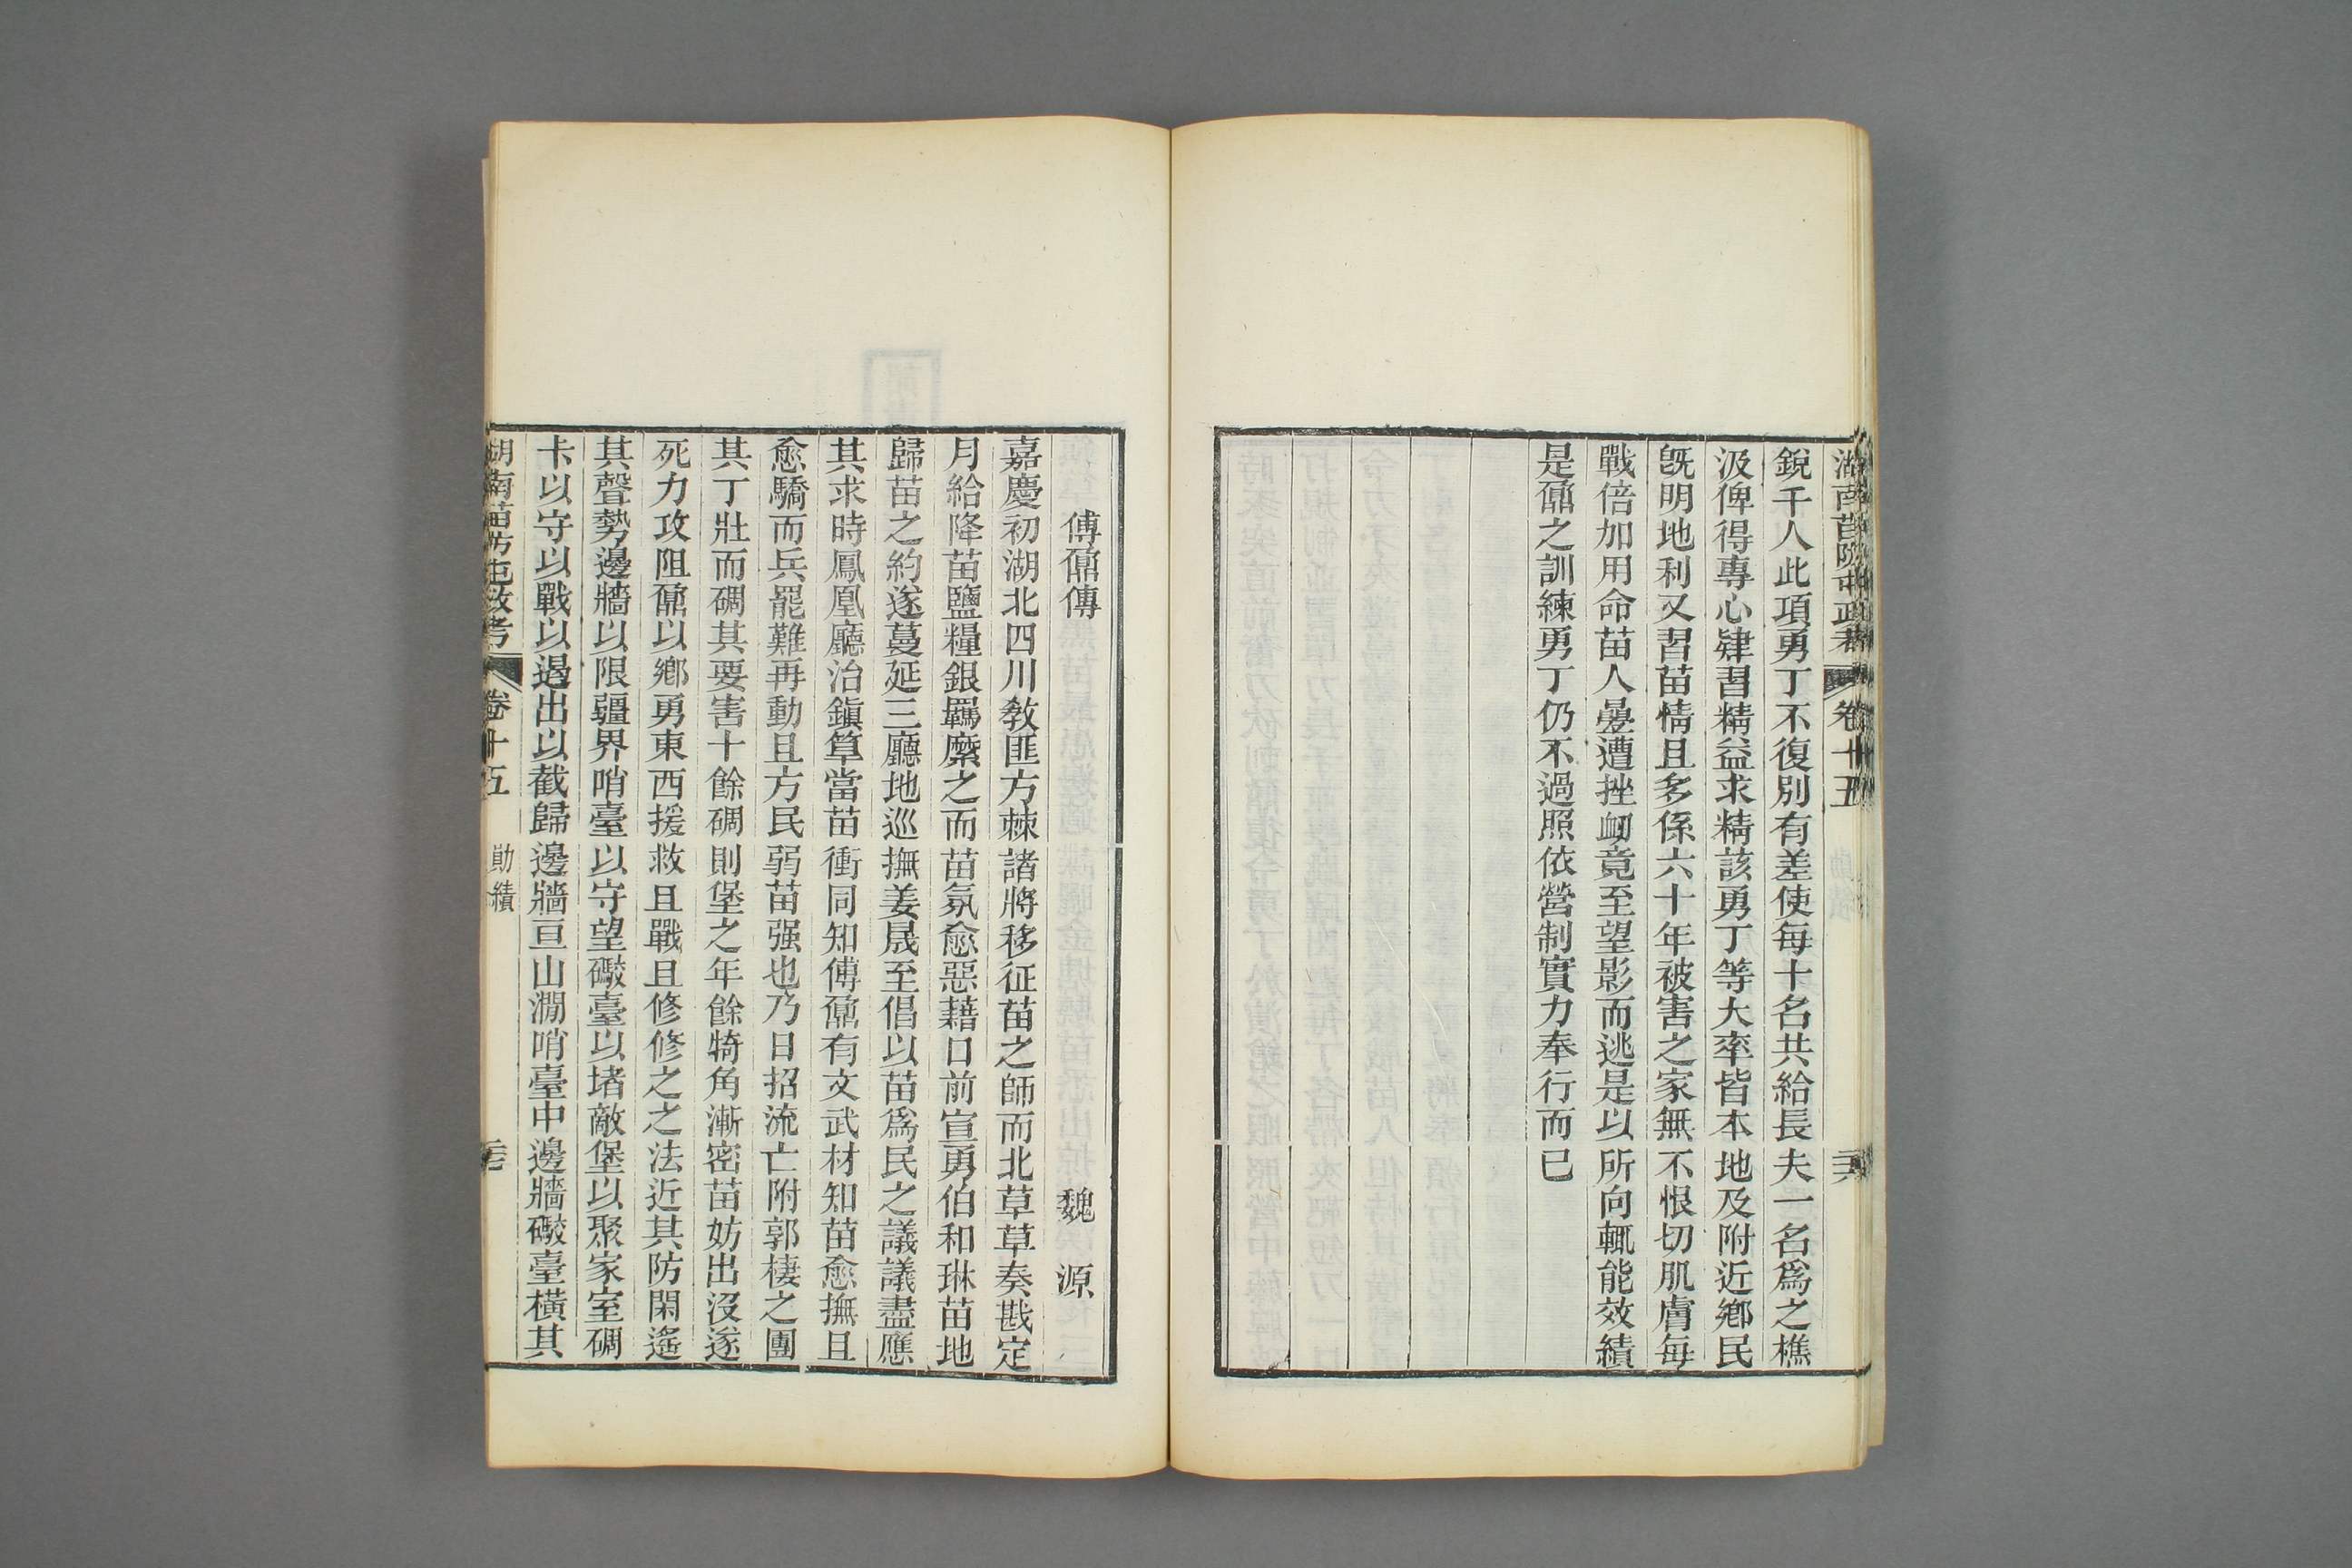 湖南苗防屯政考 卷十五
銳千人此項勇丁不復別有差使每十名共給長夫一名爲之樵
汲俾得專心肄習精益求精該勇丁等大率皆本地及附近鄉民
旣明地利又習苗情且多係六十年被害之家無不恨切肌膚每
戰倍加用命苗人曡遭挫衂竟至望影而逃是以所向輒能效績
是鼐之訓練勇丁仍不過照依營制實力奉行而已
傅鼐傳 魏源
嘉慶初湖北四川敎匪方棘諸將移征苗之師而北草草奏戡定
月給降苗鹽糧銀羈縻之而苗氛愈惡藉口前宣勇伯和琳苗地
歸苗之約遂蔓延三廳地巡撫姜晟至倡以苗爲民之議議盡應
其求時鳳凰廳治鎭筸當苗衝同知傅鼐有文武材知苗愈撫且
愈驕而兵罷難再動且方民弱苗强也乃日招流亡附郭棲之團
其丁壯而碉其要害十餘碉則堡之年餘犄角漸密苗妨出沒遂
死力攻阻鼐以鄉勇東西援救且戰且修修之之法近其防閑遙
其聲勢邊牆以限疆界哨臺以守望礮臺以堵敵堡以聚家室碉
卡以守以戰以遏出以截歸邊牆亘山澗哨臺中邊牆礮臺橫其
湖南苗防屯政考 卷十五 勛績